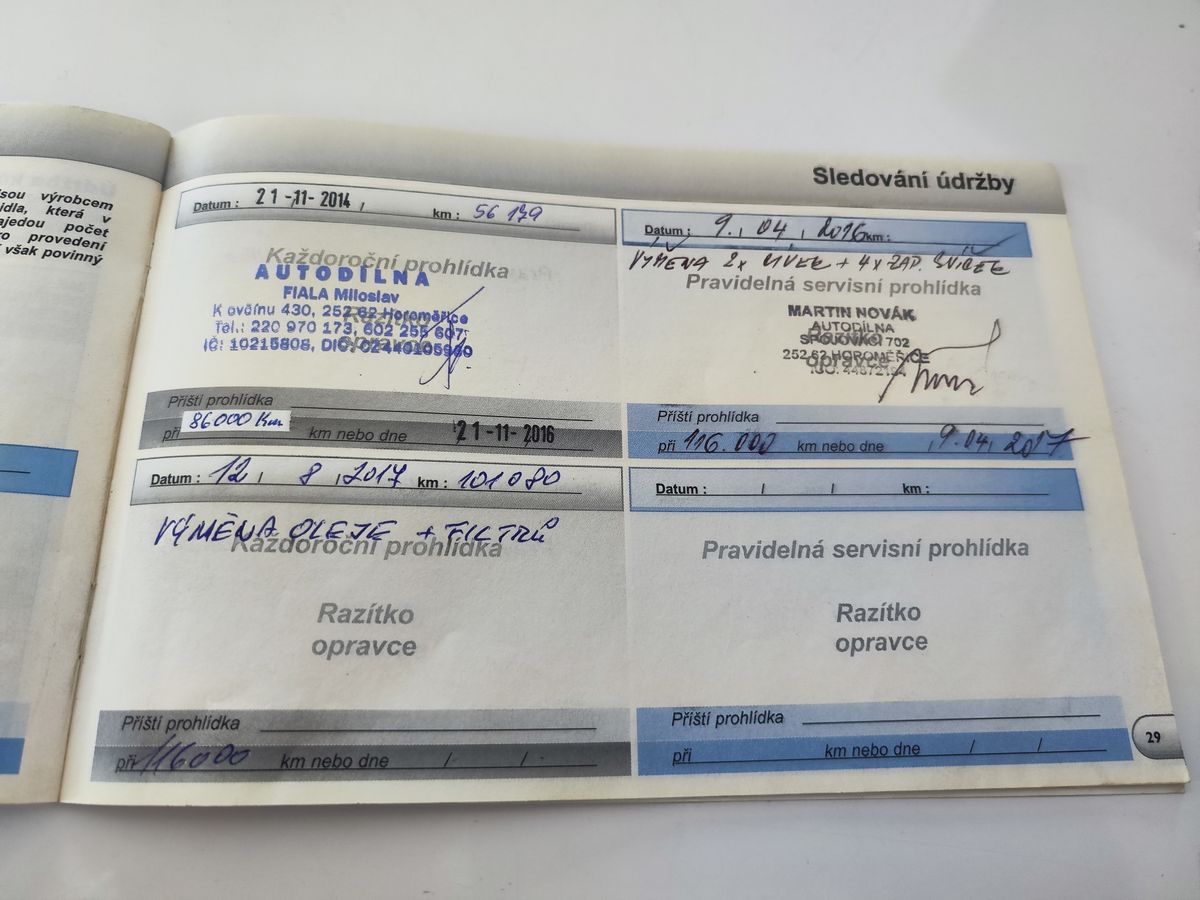 jsou výrobcem
idla, která v
ajedou počet
ro provedení
í však povinný
Sledování údržby
Datum : 21-11-2014 / km : 56 139
Každoroční prohlídka
AUTODÍLNA
FIALA Miloslav
K ovčínu 430, 252 62 Horoměřice
Tel.: 220 970 173, 602 255 607
IČ: 10215808, DIČ:
Razítko
opravce
Příští prohlídka
při 86000 Km km nebo dne 21-11-2016
Datum : 9. / 04 / 2016 km :
VÝMĚNA 2x CÍVEK + 4x ZAP. SVÍČEK
Pravidelná servisní prohlídka
MARTIN NOVÁK
AUTODÍLNA
SPOJOVACÍ 702
252 62 HOROMĚŘICE
Razítko
opravce
Příští prohlídka
při 116.000 km nebo dne 9.04. 2017
Datum : 12 / 8 / 2017 km : 101 080
VÝMĚNA OLEJE + FILTRŮ
Každoroční prohlídka
Razítko
opravce
Příští prohlídka
při 116000 km nebo dne / /
Datum : / / km :
Pravidelná servisní prohlídka
Razítko
opravce
Příští prohlídka
při km nebo dne / /
29